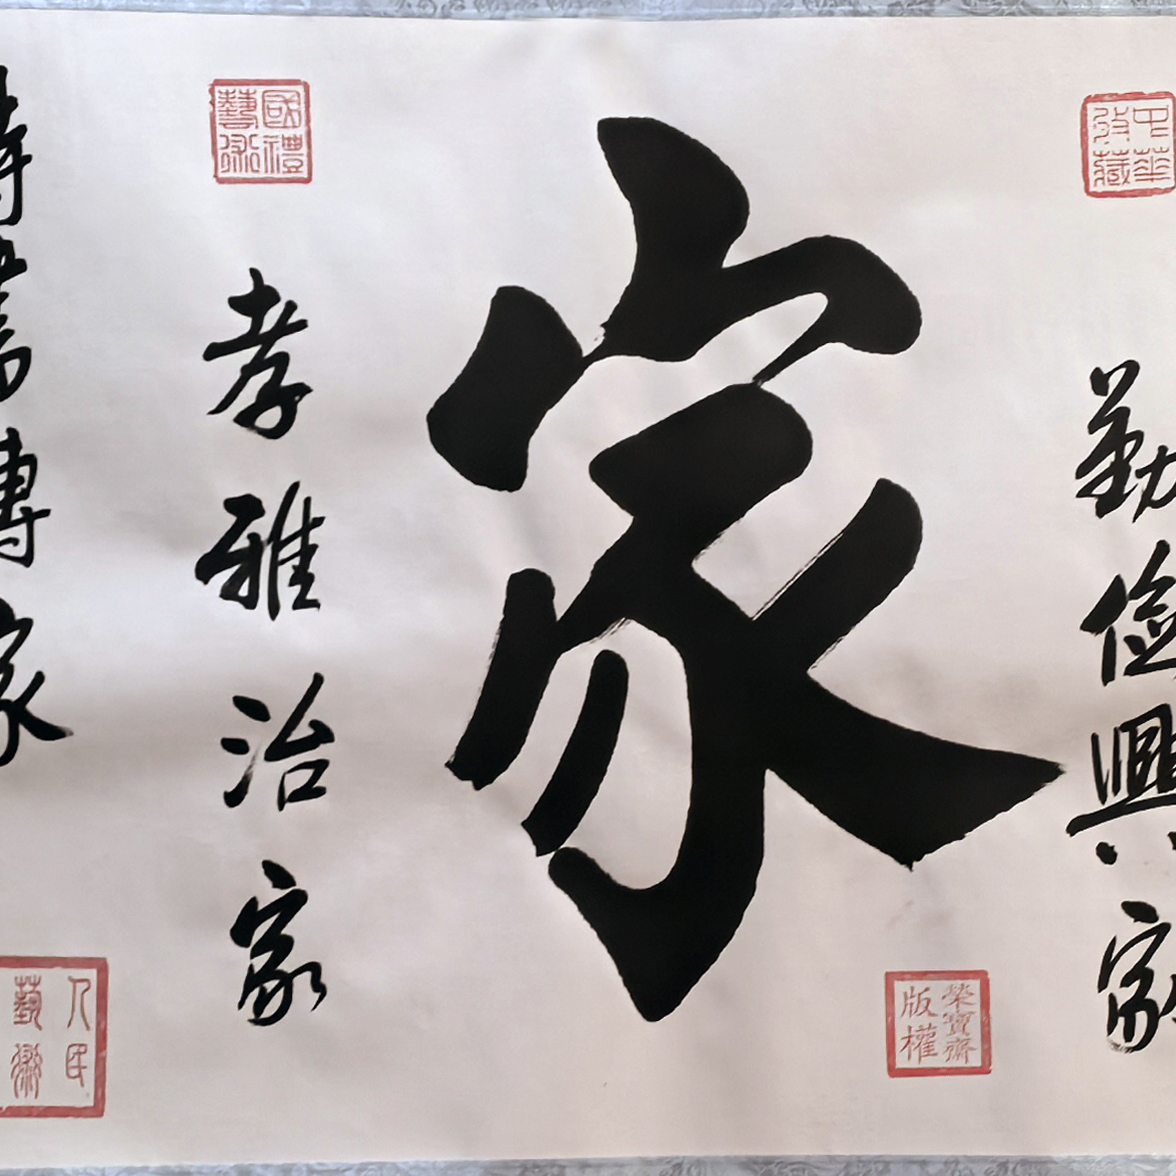 中華
收藏
勤俭興家
家
榮寶齋
版權
國禮
藝術
孝雅治家
詩書傳家
人民
藝術